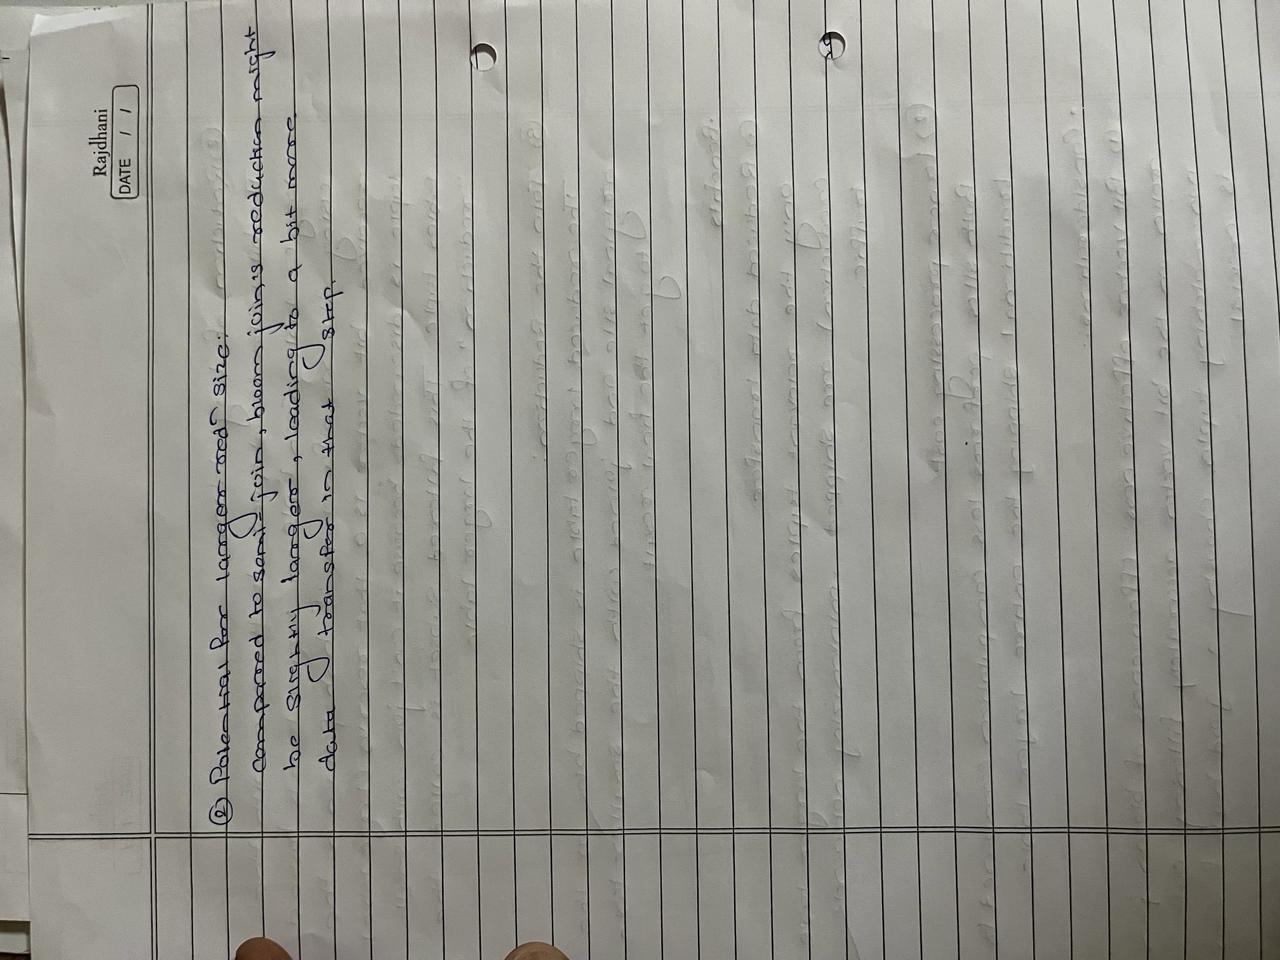 Rajdhani
DATE / /
② Potential for larger redⁿ size:
compared to semi-join, bloom join's reduction might
be slightly larger, leading to a bit more
data transfer in that step.